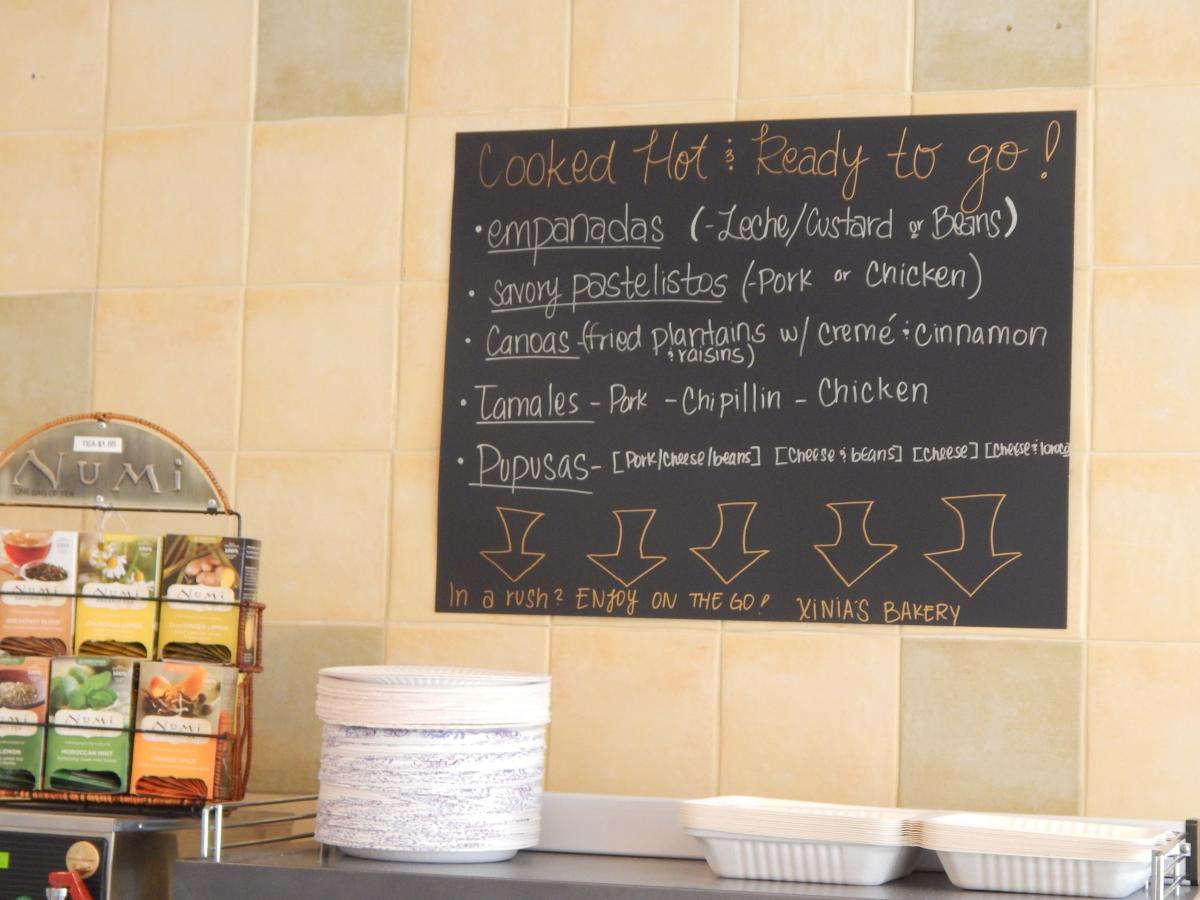 Cooked Hot & Ready to go!
• empanadas (-Leche/Custard or Beans)
• savory pastelistos (-Pork or Chicken)
• Canoas -(fried plantains w/ cremé & cinnamon
& raisins)
• Tamales - Pork - Chipillin - Chicken
• Pupusas- [Pork/Cheese/beans] [Cheese & beans] [Cheese] [Cheese & loroco
In a rush? ENJOY ON THE GO! XINIA'S BAKERY
TEA $1.85
NUMI
ONE BAG OF TEA
NUMI NUMI NUMI
BREAKFAST BLEND
NUMI NUMI
LEMON
MOROCCAN MINT
ORANGE SPICE